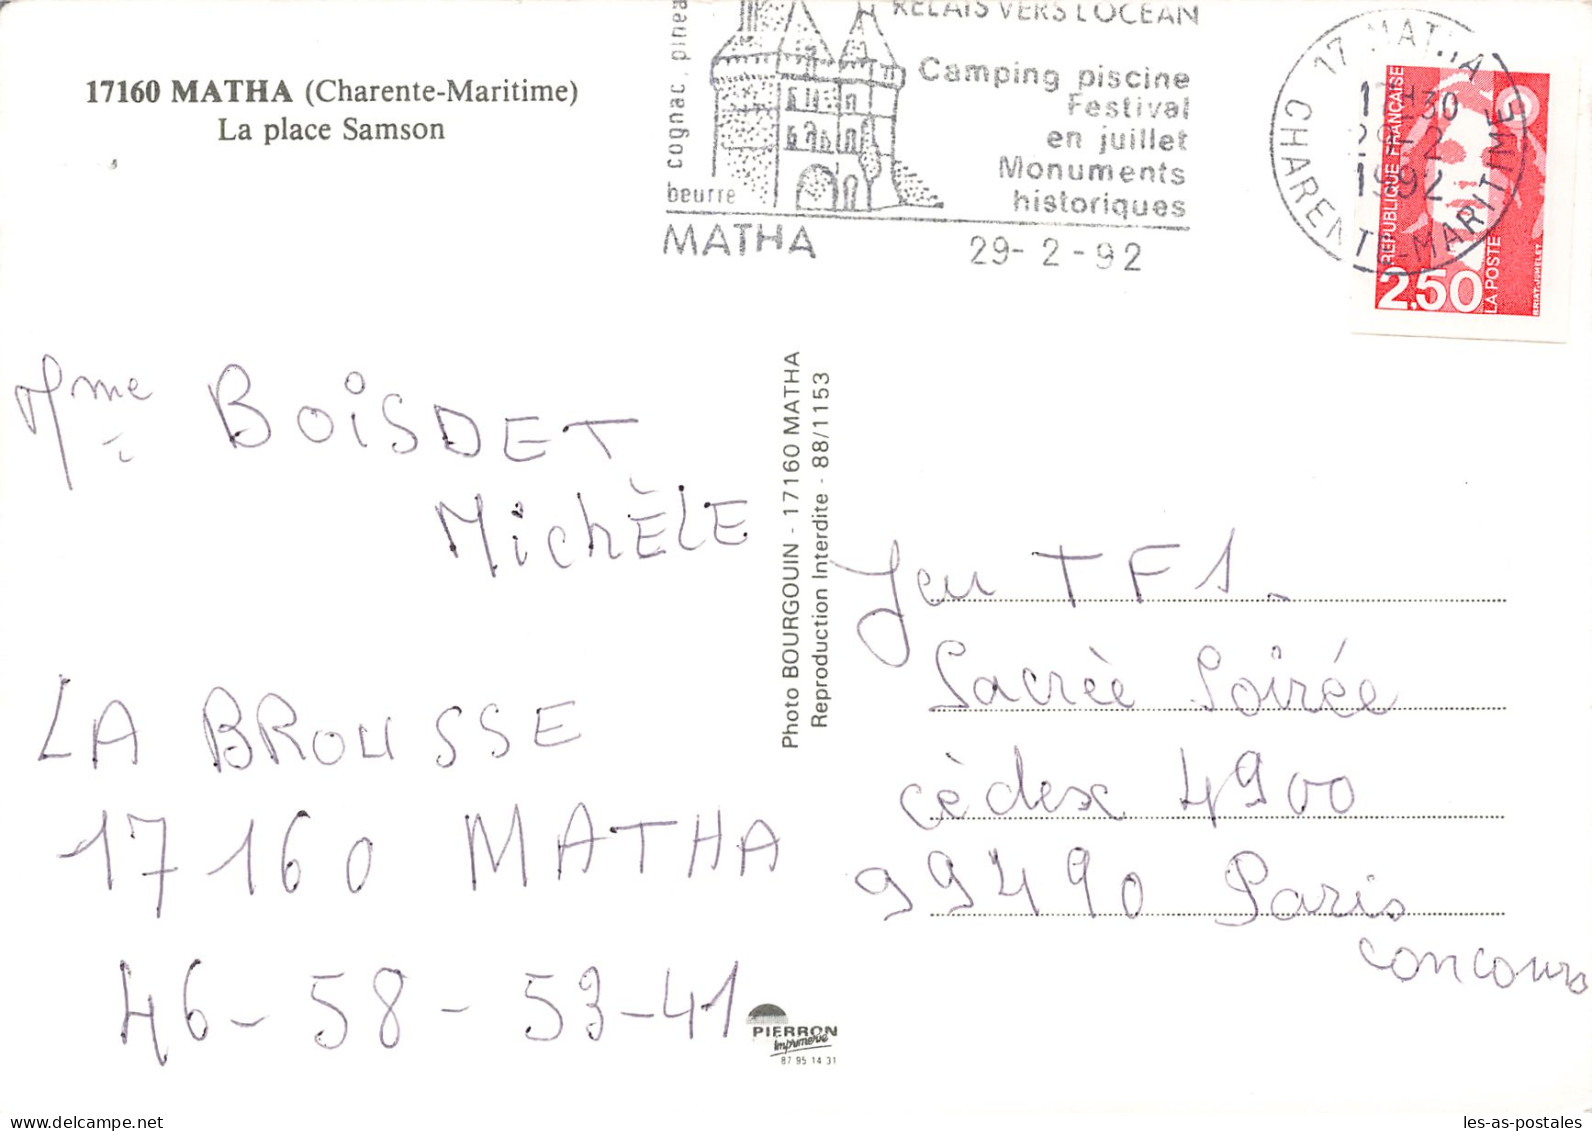 17160 MATHA (Charente-Maritime)
La place Samson
cognac, pineau
beurre
MATHA
RELAIS VERS L'OCEAN
Camping piscine
Festival
en juillet
Monuments
historiques
29-2-92
17 MATHA
CHARENTE-MARITIME
17H30
29-2
1992
REPUBLIQUE FRANÇAISE
2,50
LA POSTE
BRIAT-JUMELET
Mme BOISDET
MichÈLE
LA BROUSSE
17160 MATHA
46-58-53-41
Photo BOURGOUIN - 17160 MATHA
Reproduction Interdite - 88/1153
Jeu TF1-
Sacrèe Soirée
cèdex 4900
99490 Paris
concours
PIERRON
Imprimerie
87 95 14 31
les-as-postales